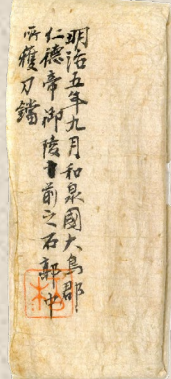 明治五年九月和泉國大鳥郡
仁德帝御陵ヨ前之石郭中
所獲刀鐺